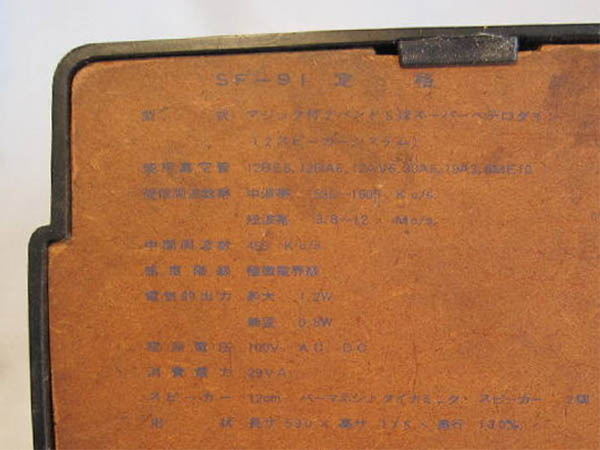 SF-91 定格
型式 マジック付2バンド5球スーパーヘテロダイン
(2スピーカーシステム)
使用真空管 12BE6, 12BA6, 12AV6, 30A5, 19A3, 6ME10
受信周波数帯 中波帯 535~1605 Kc/s.
短波帯 3.8~12 Mc/s.
中間周波数 455 Kc/s
感度階級 極微電界級
電気的出力 最大 1.2W
無歪 0.8W
電源電圧 100V. AC. DC
消費電力 29VA
スピーカー 12cm パーマネントダイナミック, スピーカー 2個
形状 長サ 530× 高サ 175× 奥行